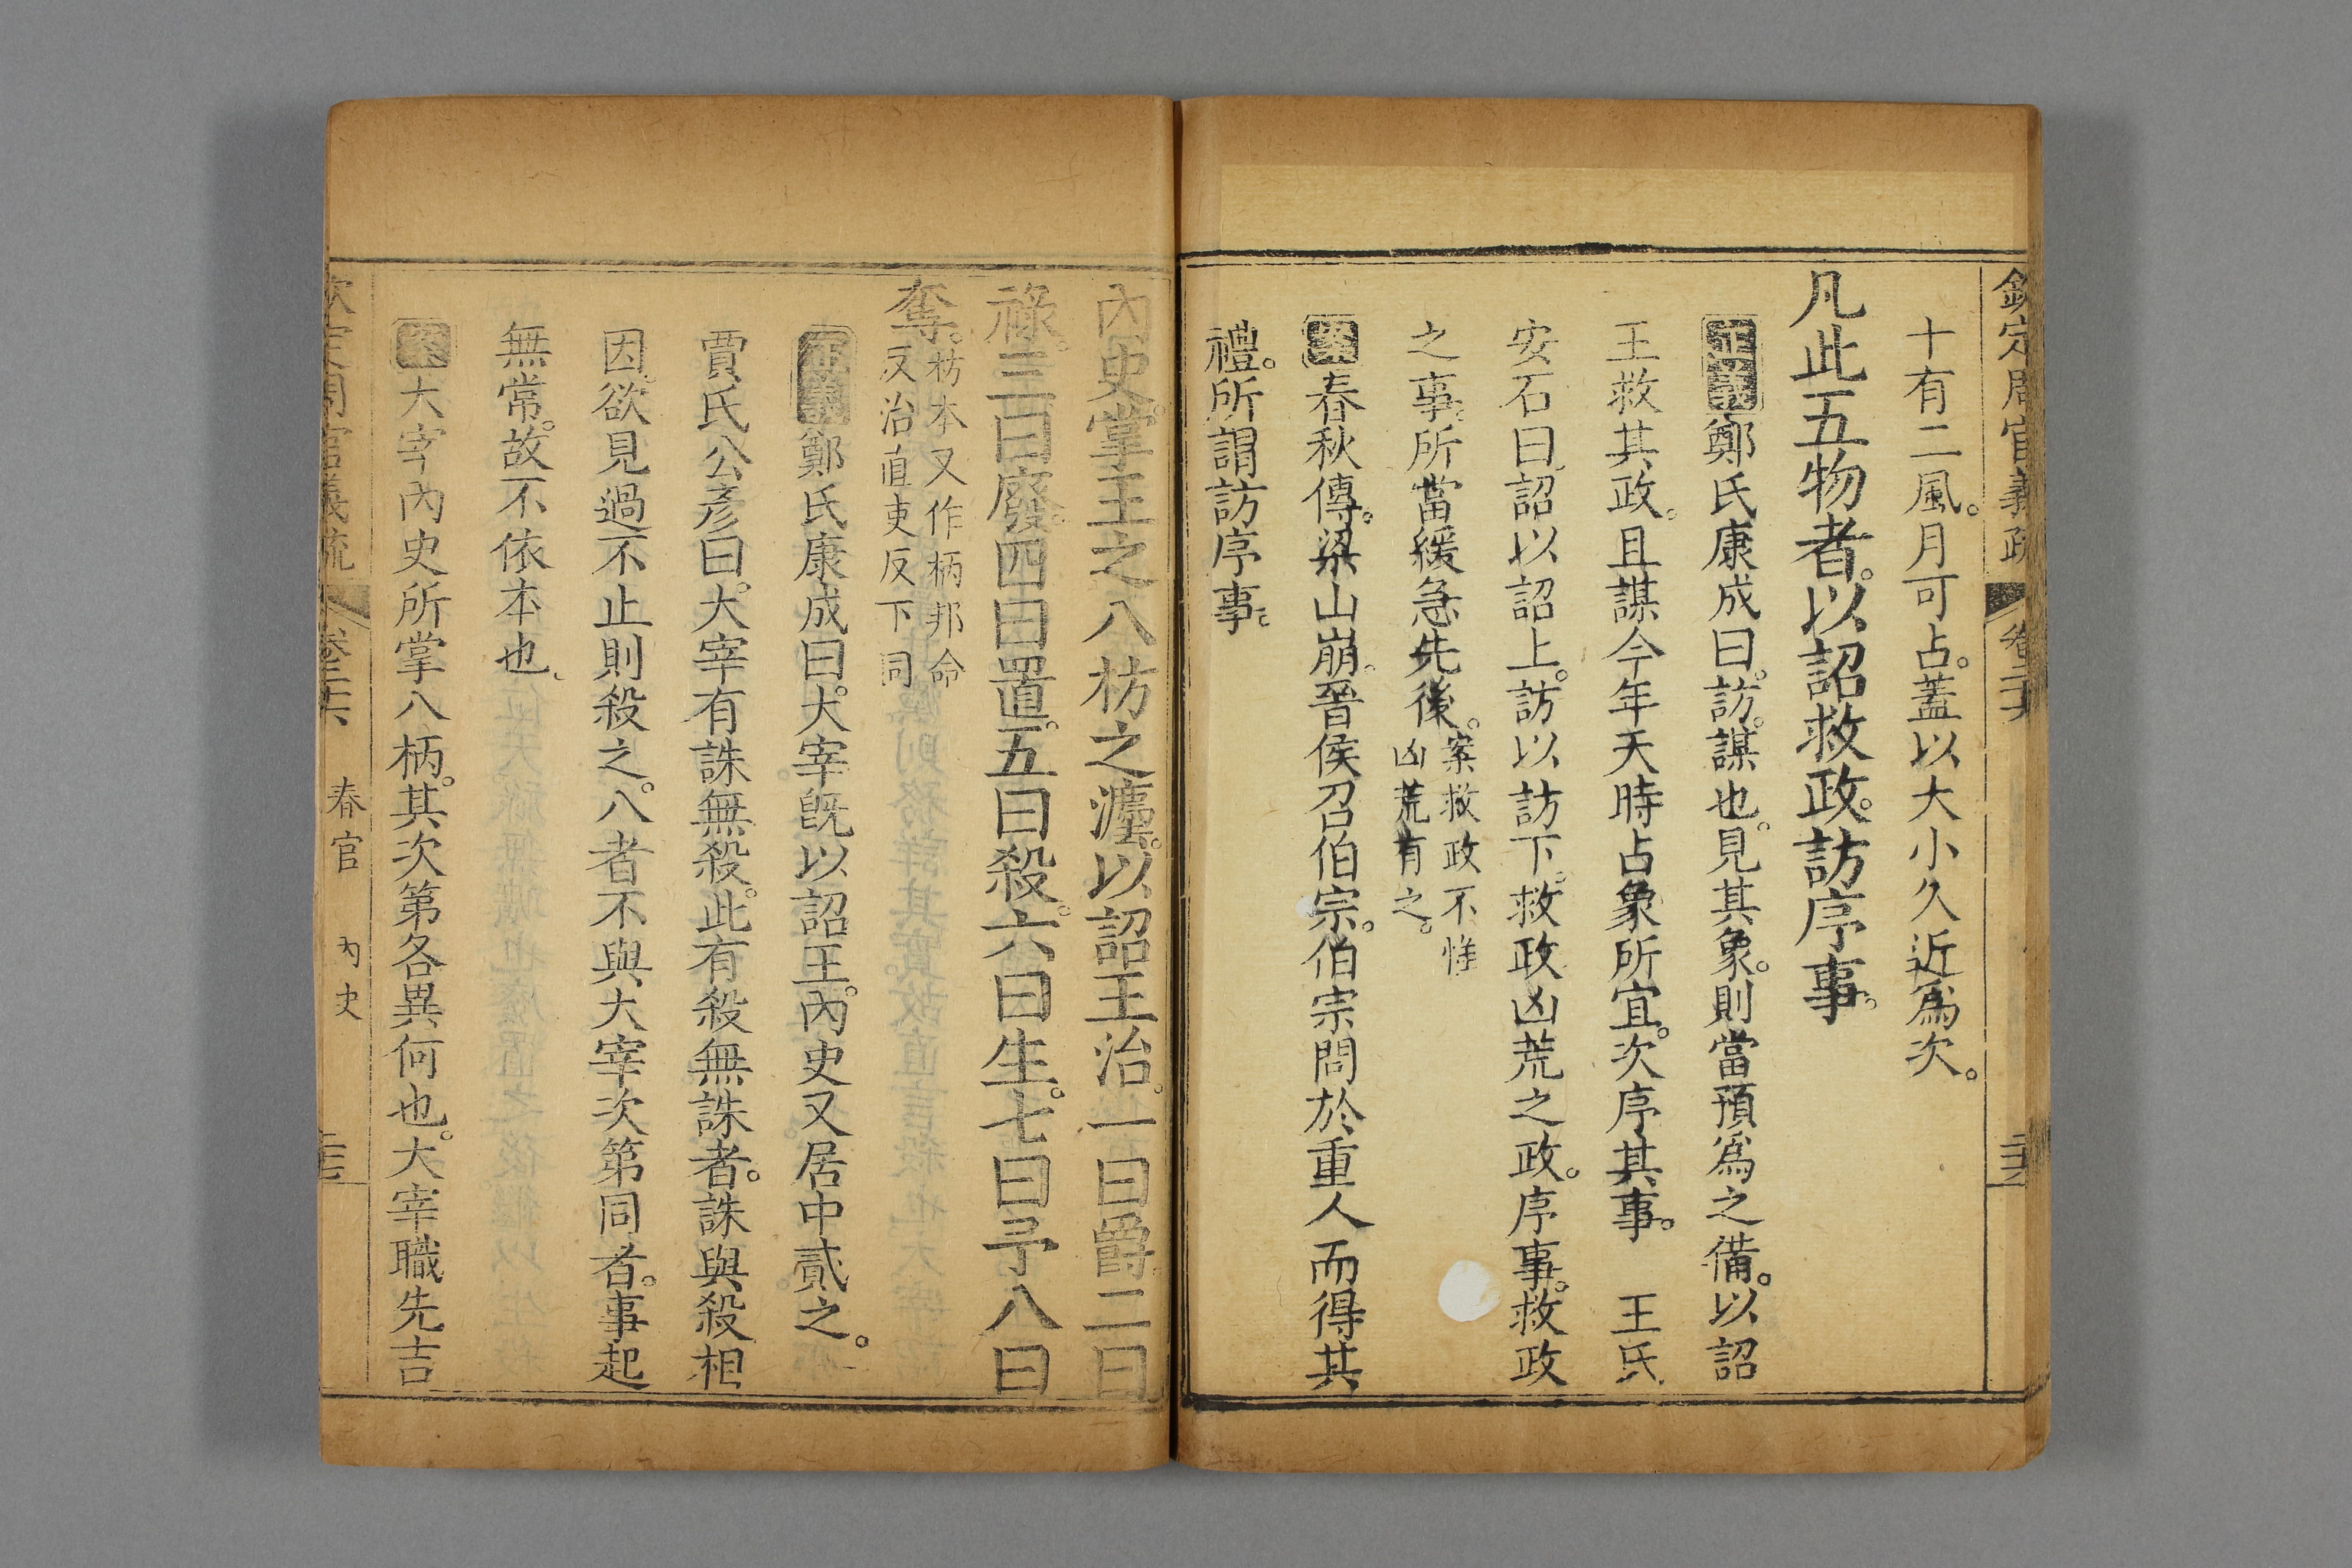 欽定周官義疏 卷二十六
十有二風。月可占。蓋以大小久近爲次。
凡此五物者。以詔救政。訪序事。
正義鄭氏康成曰。訪。謀也。見其象。則當預爲之備。以詔
王救其政。且謀今年天時占象所宜。次序其事。 王氏
安石曰。詔以詔上。訪以訪下。救政凶荒之政。序事。救政
之事。所當緩急先後。案救政不惟
凶荒有之。
案春秋傳。梁山崩。晉侯召伯宗。伯宗問於重人而得其
禮。所謂訪序事。
內史掌王之八枋之灋。以詔王治。一曰爵。二曰
祿。三曰廢。四曰置。五曰殺。六曰生。七曰予。八曰
奪。枋本又作柄邦命
反治直吏反下同
正義鄭氏康成曰。大宰既以詔王。內史又居中貳之。
賈氏公彥曰。大宰有誅無殺。此有殺無誅者。誅與殺相
因。欲見過不止則殺之。八者不與大宰次第同者。事起
無常。故不依本也。
案大宰內史所掌八柄。其次第各異何也。大宰職先吉
欽定周官義疏 卷二十六 春官 內史